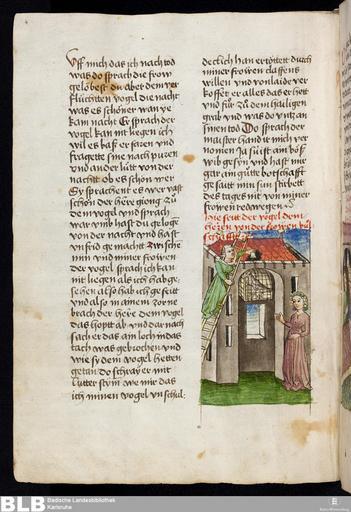 Vff mich das ich nach tod
was do sprach die frow
gelobest du aber dem ver
fluchtten vogel die nacht
was es schöner wan ye
kam nacht Er sprach der
vogel kan nit liegen ich
wil es bas er faren vnd
fragette sine nach puren
vnd ander lüt von der
nachtt ob es schön wer
Sy sprachent es wer vast
schön der herre gieng zu
dem vogel vnd sprach
war vmb hast du geloge
von der nacht vnd hast
vnfrid gemacht zwische
min vnd miner frowen
der vogel sprach ich kan
nit liegen als ich hab ge
sehen also hab ich geseitt
vnd also in ainem zorne
brach der here dem vogel
das hoptt ab vnd dar nach
sach er das am loch in das
tach was gebrochen vnd
wie sy dem vogel hetten
getan do schray er mit
lutter stym we mir das
ich minen vogel vnschul
declich han ertöttet durch
miner frowen claffens
willen vnd von laide ver
kofft er alles das er hett
vnd für zu dem hailigen
grab vnd was do vntz an
sinen tod Do sprach der
maister hand ir mich ver
nomen Ja si ist am böß
wib gesyn vnd hast mir
gar ain gütte botschafft
geseitt min sun stirbett
des tages nit von miner
frowen red wegen
Hie seitt der vogel dem
herren von der frowen bül
BLB
Badische Landesbibliothek
Karlsruhe